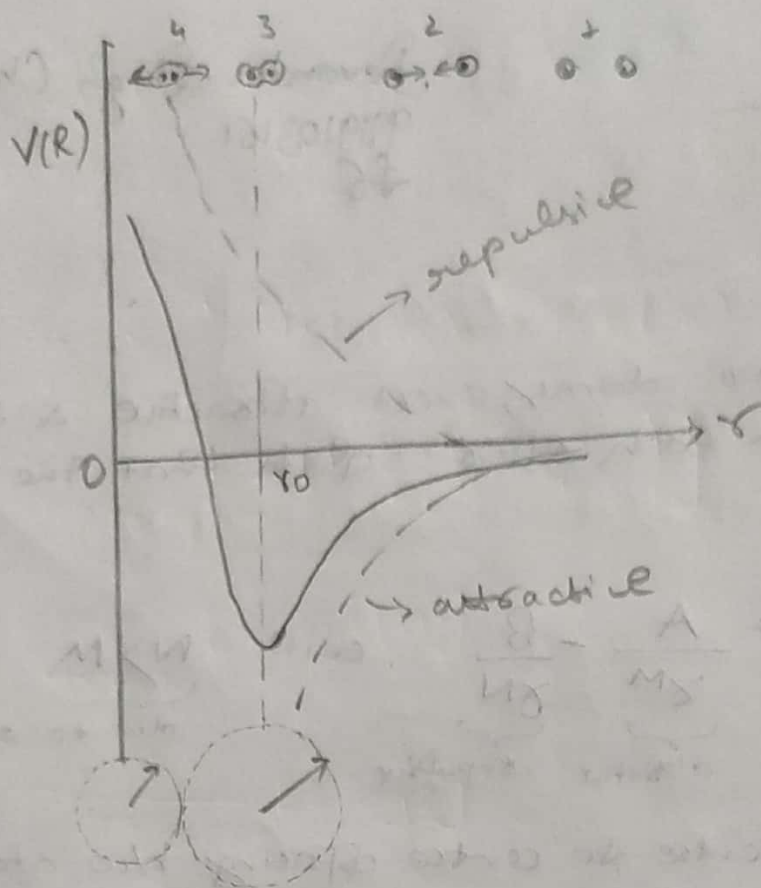 4 3 2 1
V(R)
repulsive
r
0
r0
attractive